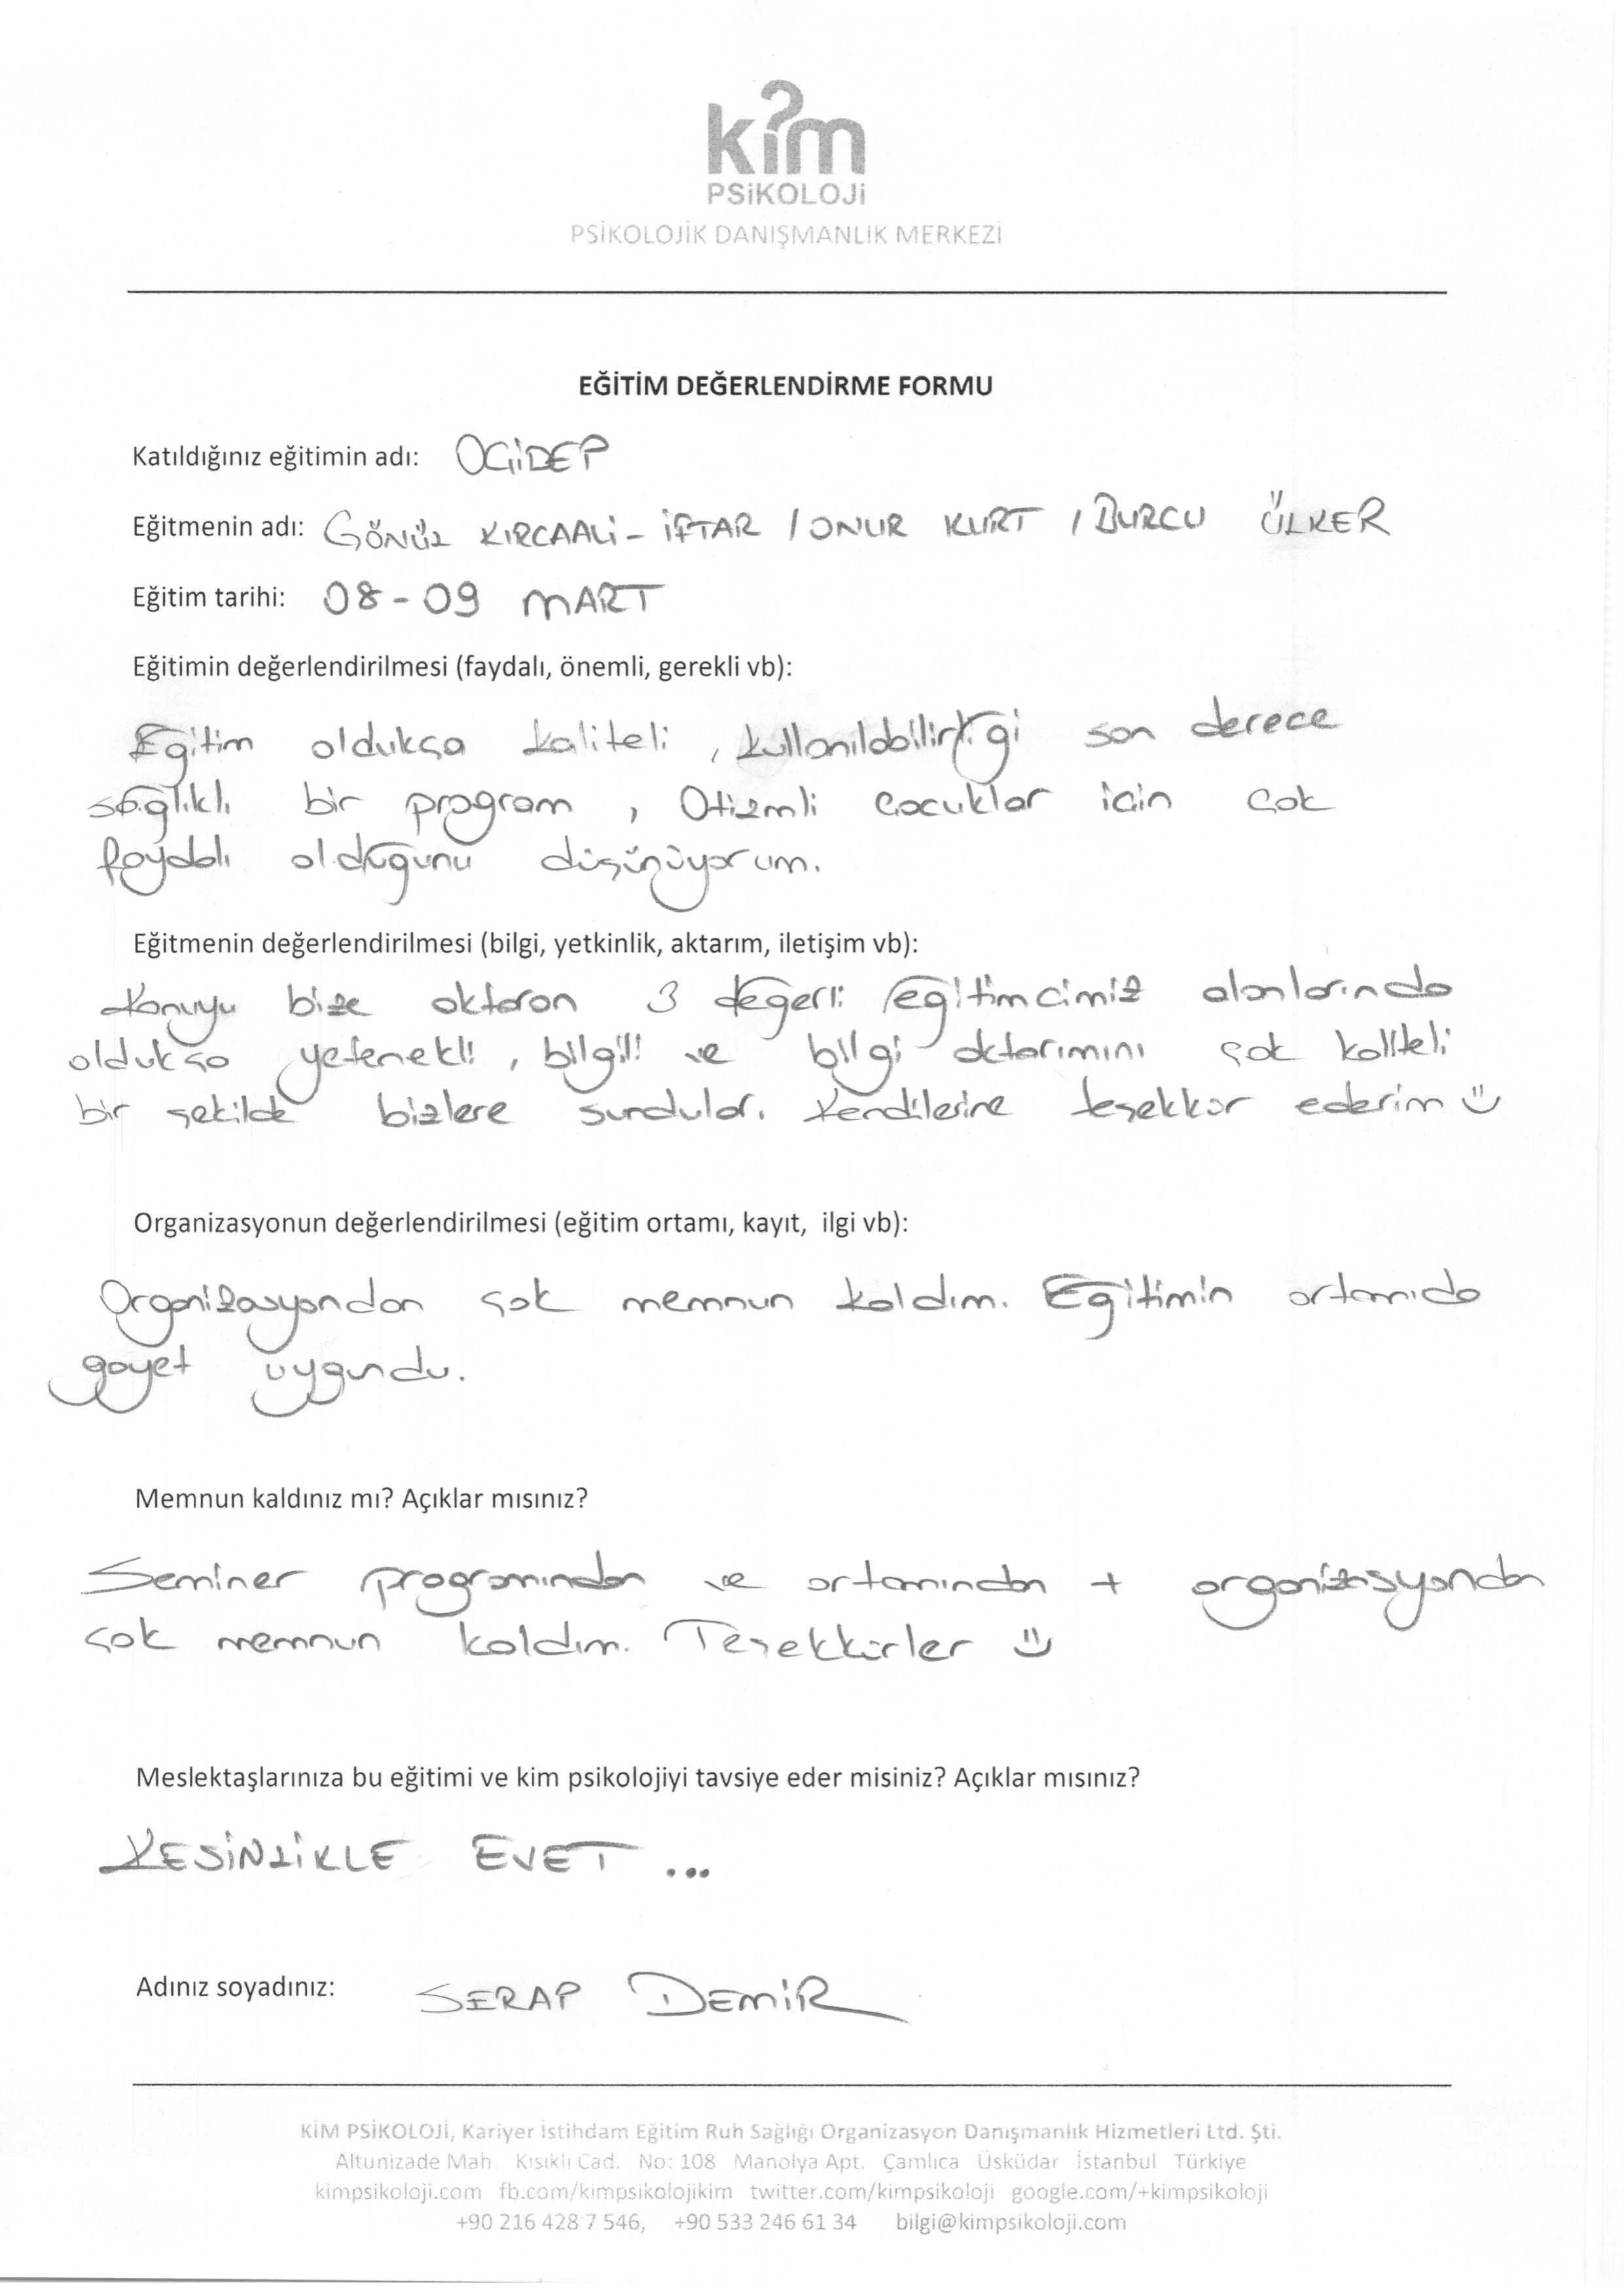 kim
PSİKOLOJİ
PSİKOLOJİK DANIŞMANLIK MERKEZİ
EĞİTİM DEĞERLENDİRME FORMU
Katıldığınız eğitimin adı: OGİDEP
Eğitmenin adı: GÖNÜL KIRCAALİ-İFTAR / ONUR KURT / BURCU ÜLKER
Eğitim tarihi: 08-09 MART
Eğitimin değerlendirilmesi (faydalı, önemli, gerekli vb):
Eğitim oldukça kaliteli, kullanılabilirliği son derece
sağlıklı bir program, Otizmli çocuklar için çok
faydalı olduğunu düşünüyorum.
Eğitmenin değerlendirilmesi (bilgi, yetkinlik, aktarım, iletişim vb):
Konuyu bize aktaran 3 değerli eğitimcimiz alanlarında
oldukça yetenekli, bilgili ve bilgi aktarımını çok kaliteli
bir şekilde bizlere sundular. Kendilerine teşekkür ederim :)
Organizasyonun değerlendirilmesi (eğitim ortamı, kayıt, ilgi vb):
Organizasyondan çok memnun kaldım. Eğitimin ortamıda
gayet uygundu.
Memnun kaldınız mı? Açıklar mısınız?
Seminer programından ve ortamından + organizasyondan
çok memnun kaldım. Teşekkürler :)
Meslektaşlarınıza bu eğitimi ve kim psikolojiyi tavsiye eder misiniz? Açıklar mısınız?
KESİNLİKLE EVET ...
Adınız soyadınız: SERAP DEMİR
KİM PSİKOLOJİ, Kariyer İstihdam Eğitim Ruh Sağlığı Organizasyon Danışmanlık Hizmetleri Ltd. Şti.
Altunizade Mah. Kısıklı Cad. No: 108 Manolya Apt. Çamlıca Üsküdar İstanbul Türkiye
kimpsikoloji.com fb.com/kimpsikolojikim twitter.com/kimpsikoloji google.com/+kimpsikoloji
+90 216 428 7 546, +90 533 246 61 34 bilgi@kimpsikoloji.com